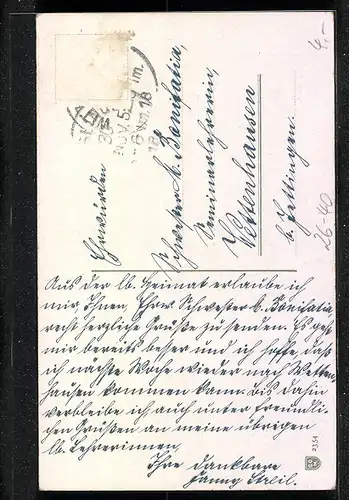 4.-
Ehrwürden
Schwester M. Bonifatia,
Seminarlehrerin,
Wettenhausen
b. Jettingen.
26-40
Aus der lb. Heimat erlaube ich
mir, Ihnen, Ehrw. Schwester M. Bonifatia,
recht herzliche Grüße zu senden. Es geht
mir bereits besser und ich hoffe, daß
ich nächste Woche wieder nach Wetten-
hausen kommen kann. Bis dahin
verbleibe ich auch unter freundli-
chen Grüßen an meine übrigen
lb. Lehrerinnen,
Ihre dankbare
Fanny Streil.
2334